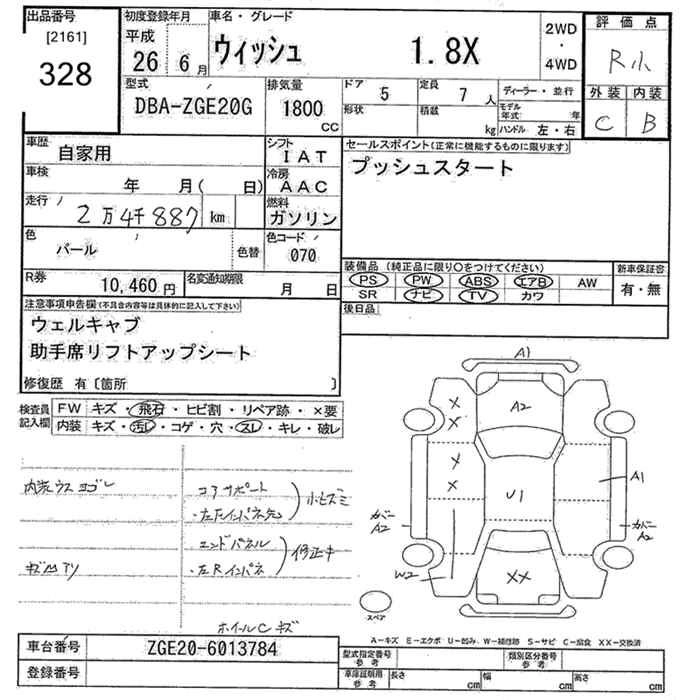 出品番号
[2161]
328
初度登録年月
平成
26 6月
車名・グレード
ウィッシュ 1.8X
2WD
・
4WD
評価点
R小
外装 内装
C B
型式
DBA-ZGE20G
排気量
1800
CC
ドア 5
形状
定員 7 人
積載
kg
ディーラー・並行
モデル年式 年
ハンドル 左・右
車歴
自家用
シフト
IAT
車検
年 月( 日)
冷房
AAC
走行
2万4千887 km
燃料
ガソリン
色
パール
色替
色コード
070
R券
10,460円
名変通知期限
月 日
セールスポイント(正常に機能するものに限ります)
プッシュスタート
装備品(純正品に限り○をつけてください)
PS PW ABS エアB AW
SR ナビ TV カワ
新車保証書
有・無
後日品
注意事項申告欄(不具合内容等は具体的に記入して下さい)
ウェルキャブ
助手席リフトアップシート
修復歴 有〔箇所 〕
検査員
記入欄
FW キズ・飛石・ヒビ割・リペア跡・×要
内装 キズ・汚レ・コゲ・穴・スレ・キレ・破レ
内装ウスヨゴレ
コアサポート
・左Fインパネ先
小ヒズミ
キズ凹アリ
エンドパネル
・左Rインパネ
修正キ
ホイールCキズ
A1
A2
X
X
X
X
U1
A1
カバー
A2
カバー
A2
W2
XX
スペア
A-キズ E-エクボ U-凹み W-補修跡 S-サビ C-腐食 XX-交換済
車台番号
ZGE20-6013784
登録番号
型式指定番号
参考
類別区分番号
参考
車庫証明用
参考
長さ cm
幅 cm
高さ cm